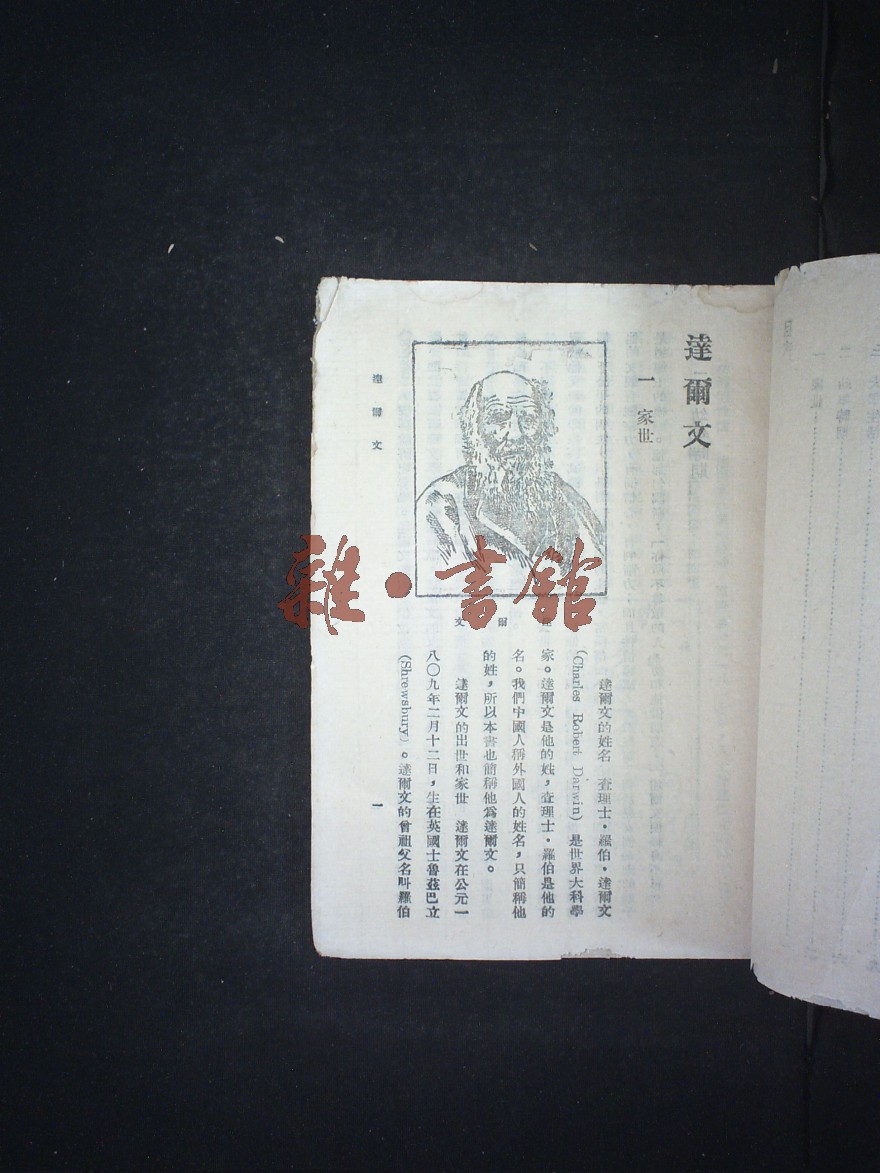 達爾文
一 家世
達爾文
達爾文的姓名 查理士·羅伯·達爾文
(Charles Robert Darwin) 是世界大科學
家。達爾文是他的姓，查理士·羅伯是他的
名。我們中國人稱外國人的姓名，只簡稱他
的姓，所以本書也簡稱他爲達爾文。
達爾文的出世和家世 達爾文在公元一
八〇九年二月十二日，生在英國士魯茲巴立
(Shrewsbury)。達爾文的曾祖父名叫羅伯
達爾文
一
雜·書館